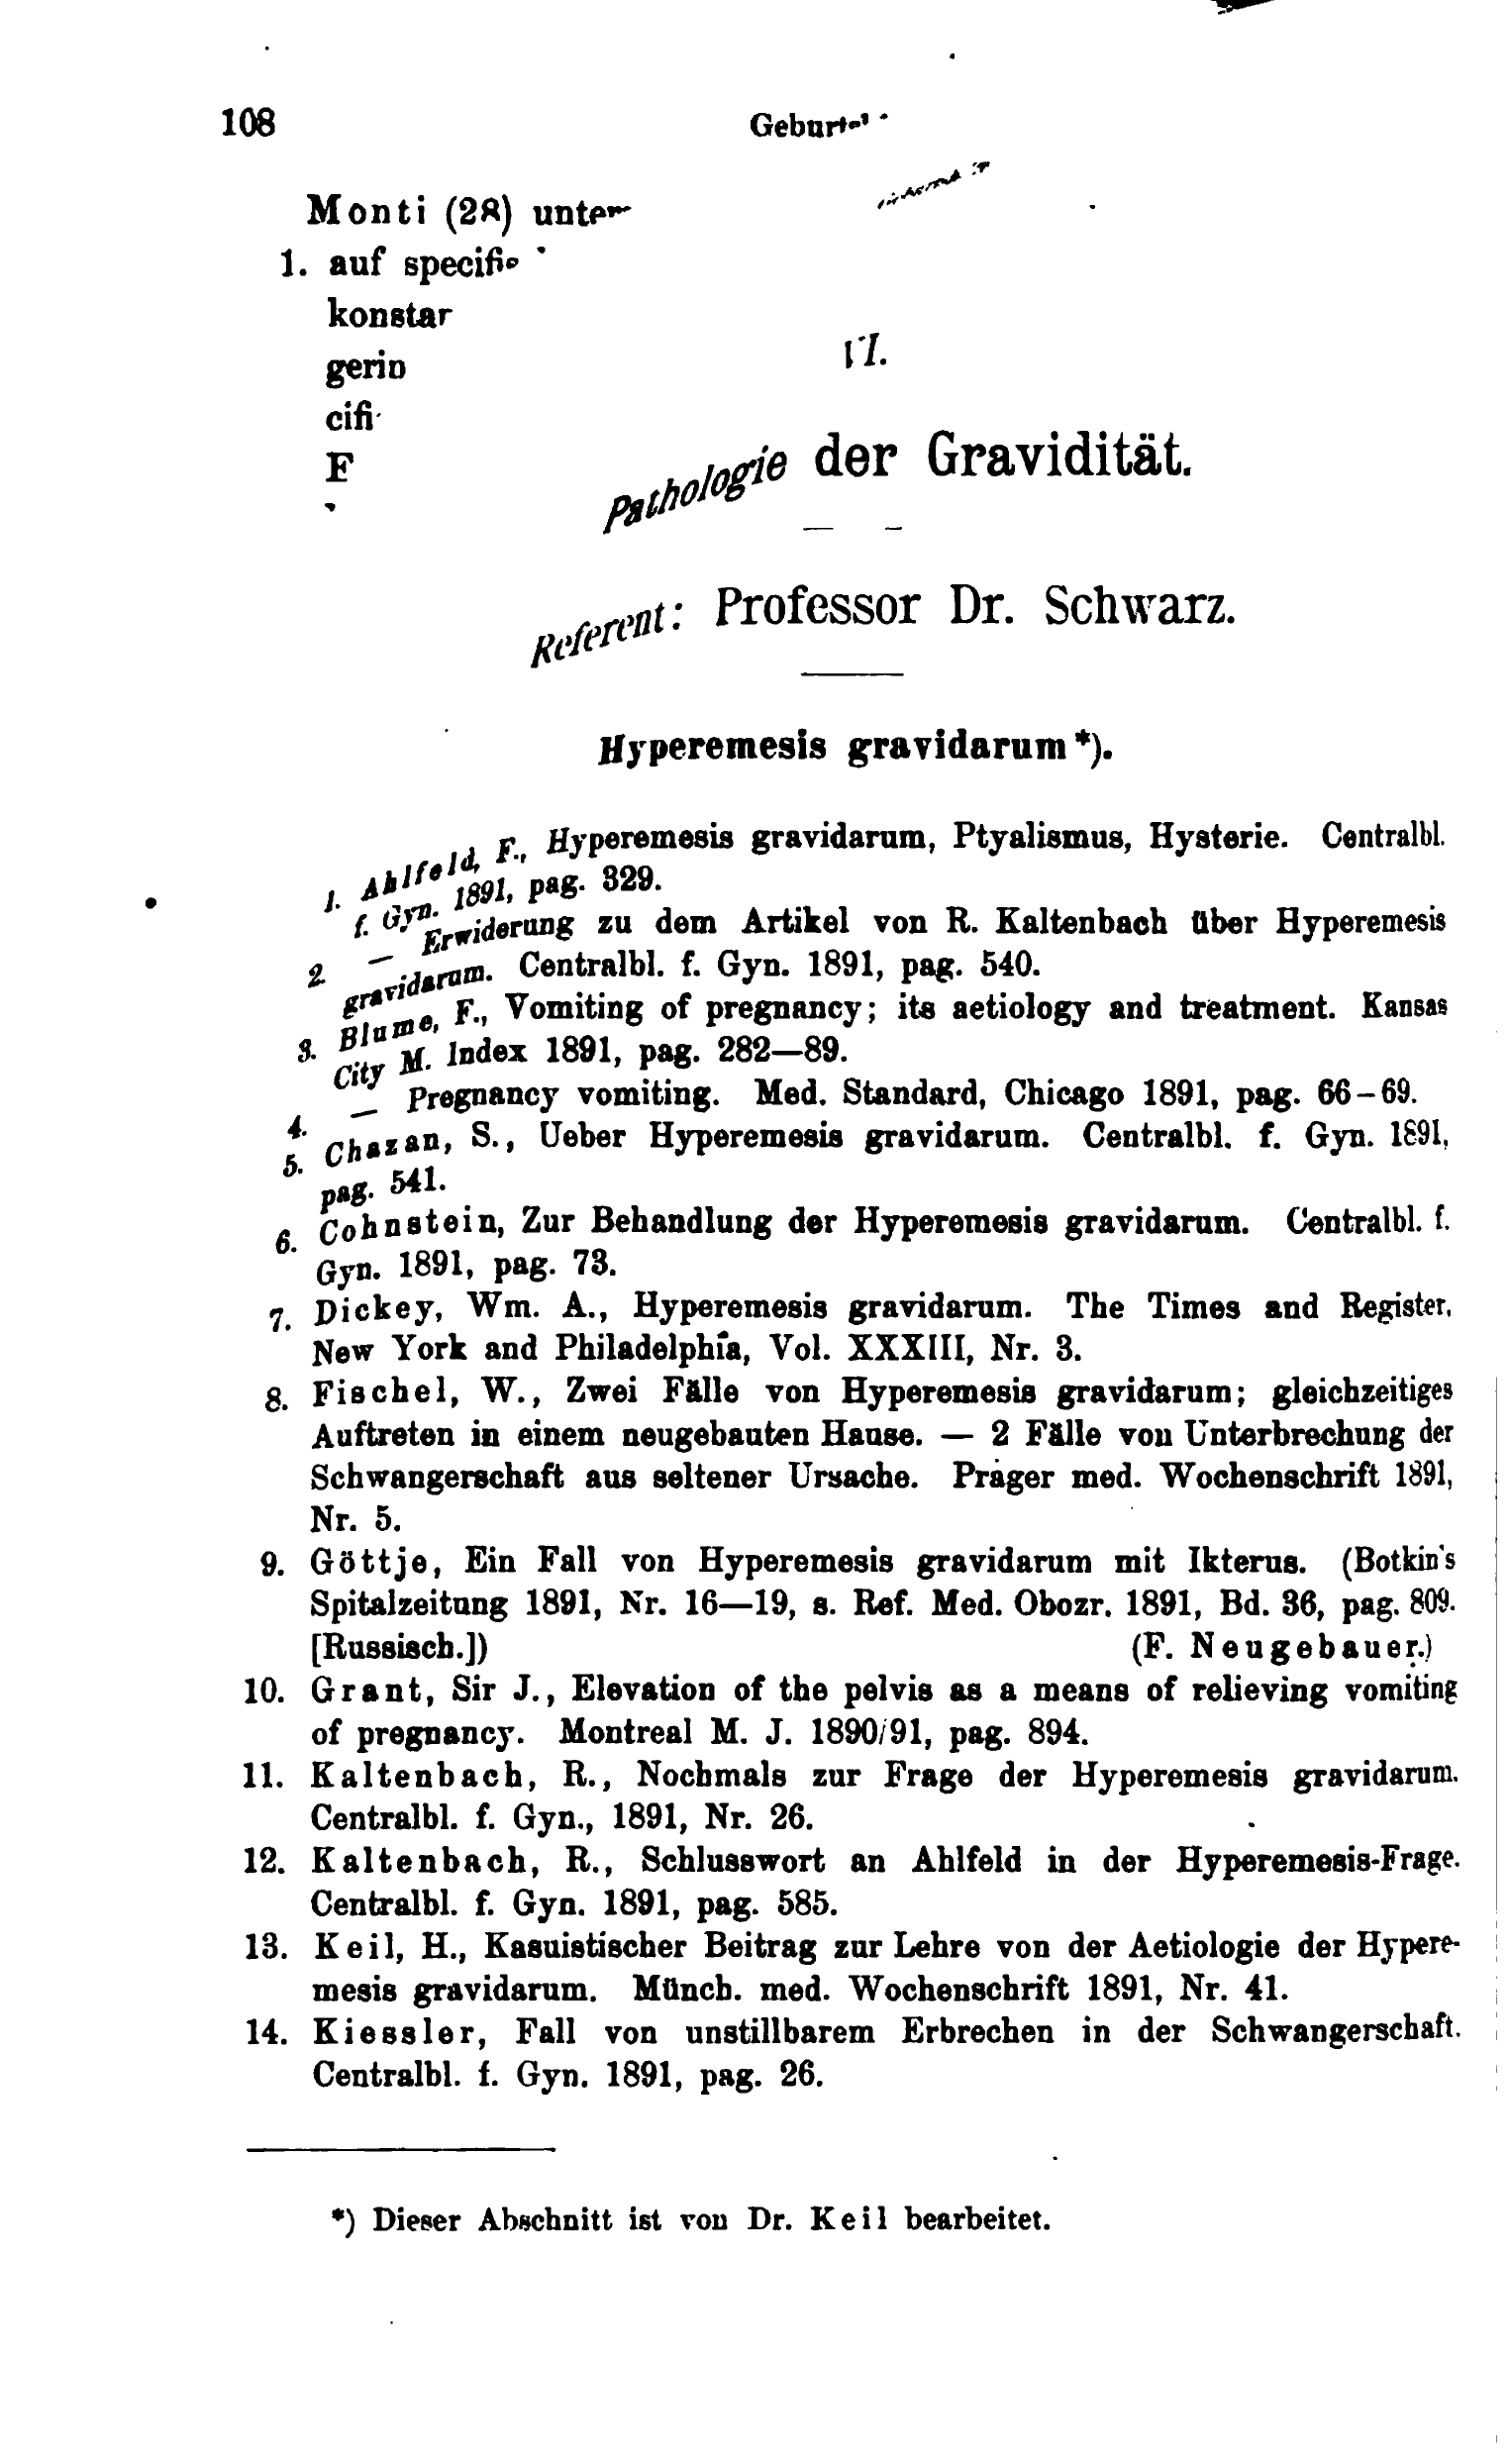 108
Monti (28)
1. auf
der Gravidität.
Pathologie
Referent: Professor Dr. Schwarz.
Hyperemesis gravidarum*).
1. Ahlfeld, F., Hyperemesis gravidarum, Ptyalismus, Hysterie. Centralbl.
f. Gyn. 1891, pag. 329.
2. — Erwiderung zu dem Artikel von R. Kaltenbach über Hyperemesis
gravidarum. Centralbl. f. Gyn. 1891, pag. 540.
3. Blume, F., Vomiting of pregnancy; its aetiology and treatment. Kansas
City M. Index 1891, pag. 282—89.
4. — Pregnancy vomiting. Med. Standard, Chicago 1891, pag. 66–69.
5. Chazan, S., Ueber Hyperemesis gravidarum. Centralbl. f. Gyn. 1891,
pag. 541.
6. Cohnstein, Zur Behandlung der Hyperemesis gravidarum. Centralbl. f.
Gyn. 1891, pag. 73.
7. Dickey, Wm. A., Hyperemesis gravidarum. The Times and Register,
New York and Philadelphia, Vol. XXXIII, Nr. 3.
8. Fischel, W., Zwei Fälle von Hyperemesis gravidarum; gleichzeitiges
Auftreten in einem neugebauten Hause. — 2 Fälle von Unterbrechung der
Schwangerschaft aus seltener Ursache. Prager med. Wochenschrift 1891,
Nr. 5.
9. Göttje, Ein Fall von Hyperemesis gravidarum mit Ikterus. (Botkin's
Spitalzeitung 1891, Nr. 16—19, s. Ref. Med. Obozr. 1891, Bd. 36, pag. 809.
[Russisch.]) (F. Neugebauer.)
10. Grant, Sir J., Elevation of the pelvis as a means of relieving vomiting
of pregnancy. Montreal M. J. 1890/91, pag. 894.
11. Kaltenbach, R., Nochmals zur Frage der Hyperemesis gravidarum.
Centralbl. f. Gyn., 1891, Nr. 26.
12. Kaltenbach, R., Schlusswort an Ahlfeld in der Hyperemesis-Frage.
Centralbl. f. Gyn. 1891, pag. 585.
13. Keil, H., Kasuistischer Beitrag zur Lehre von der Aetiologie der Hypere-
mesis gravidarum. Münch. med. Wochenschrift 1891, Nr. 41.
14. Kiessler, Fall von unstillbarem Erbrechen in der Schwangerschaft.
Centralbl. f. Gyn. 1891, pag. 26.
*) Dieser Abschnitt ist von Dr. Keil bearbeitet.